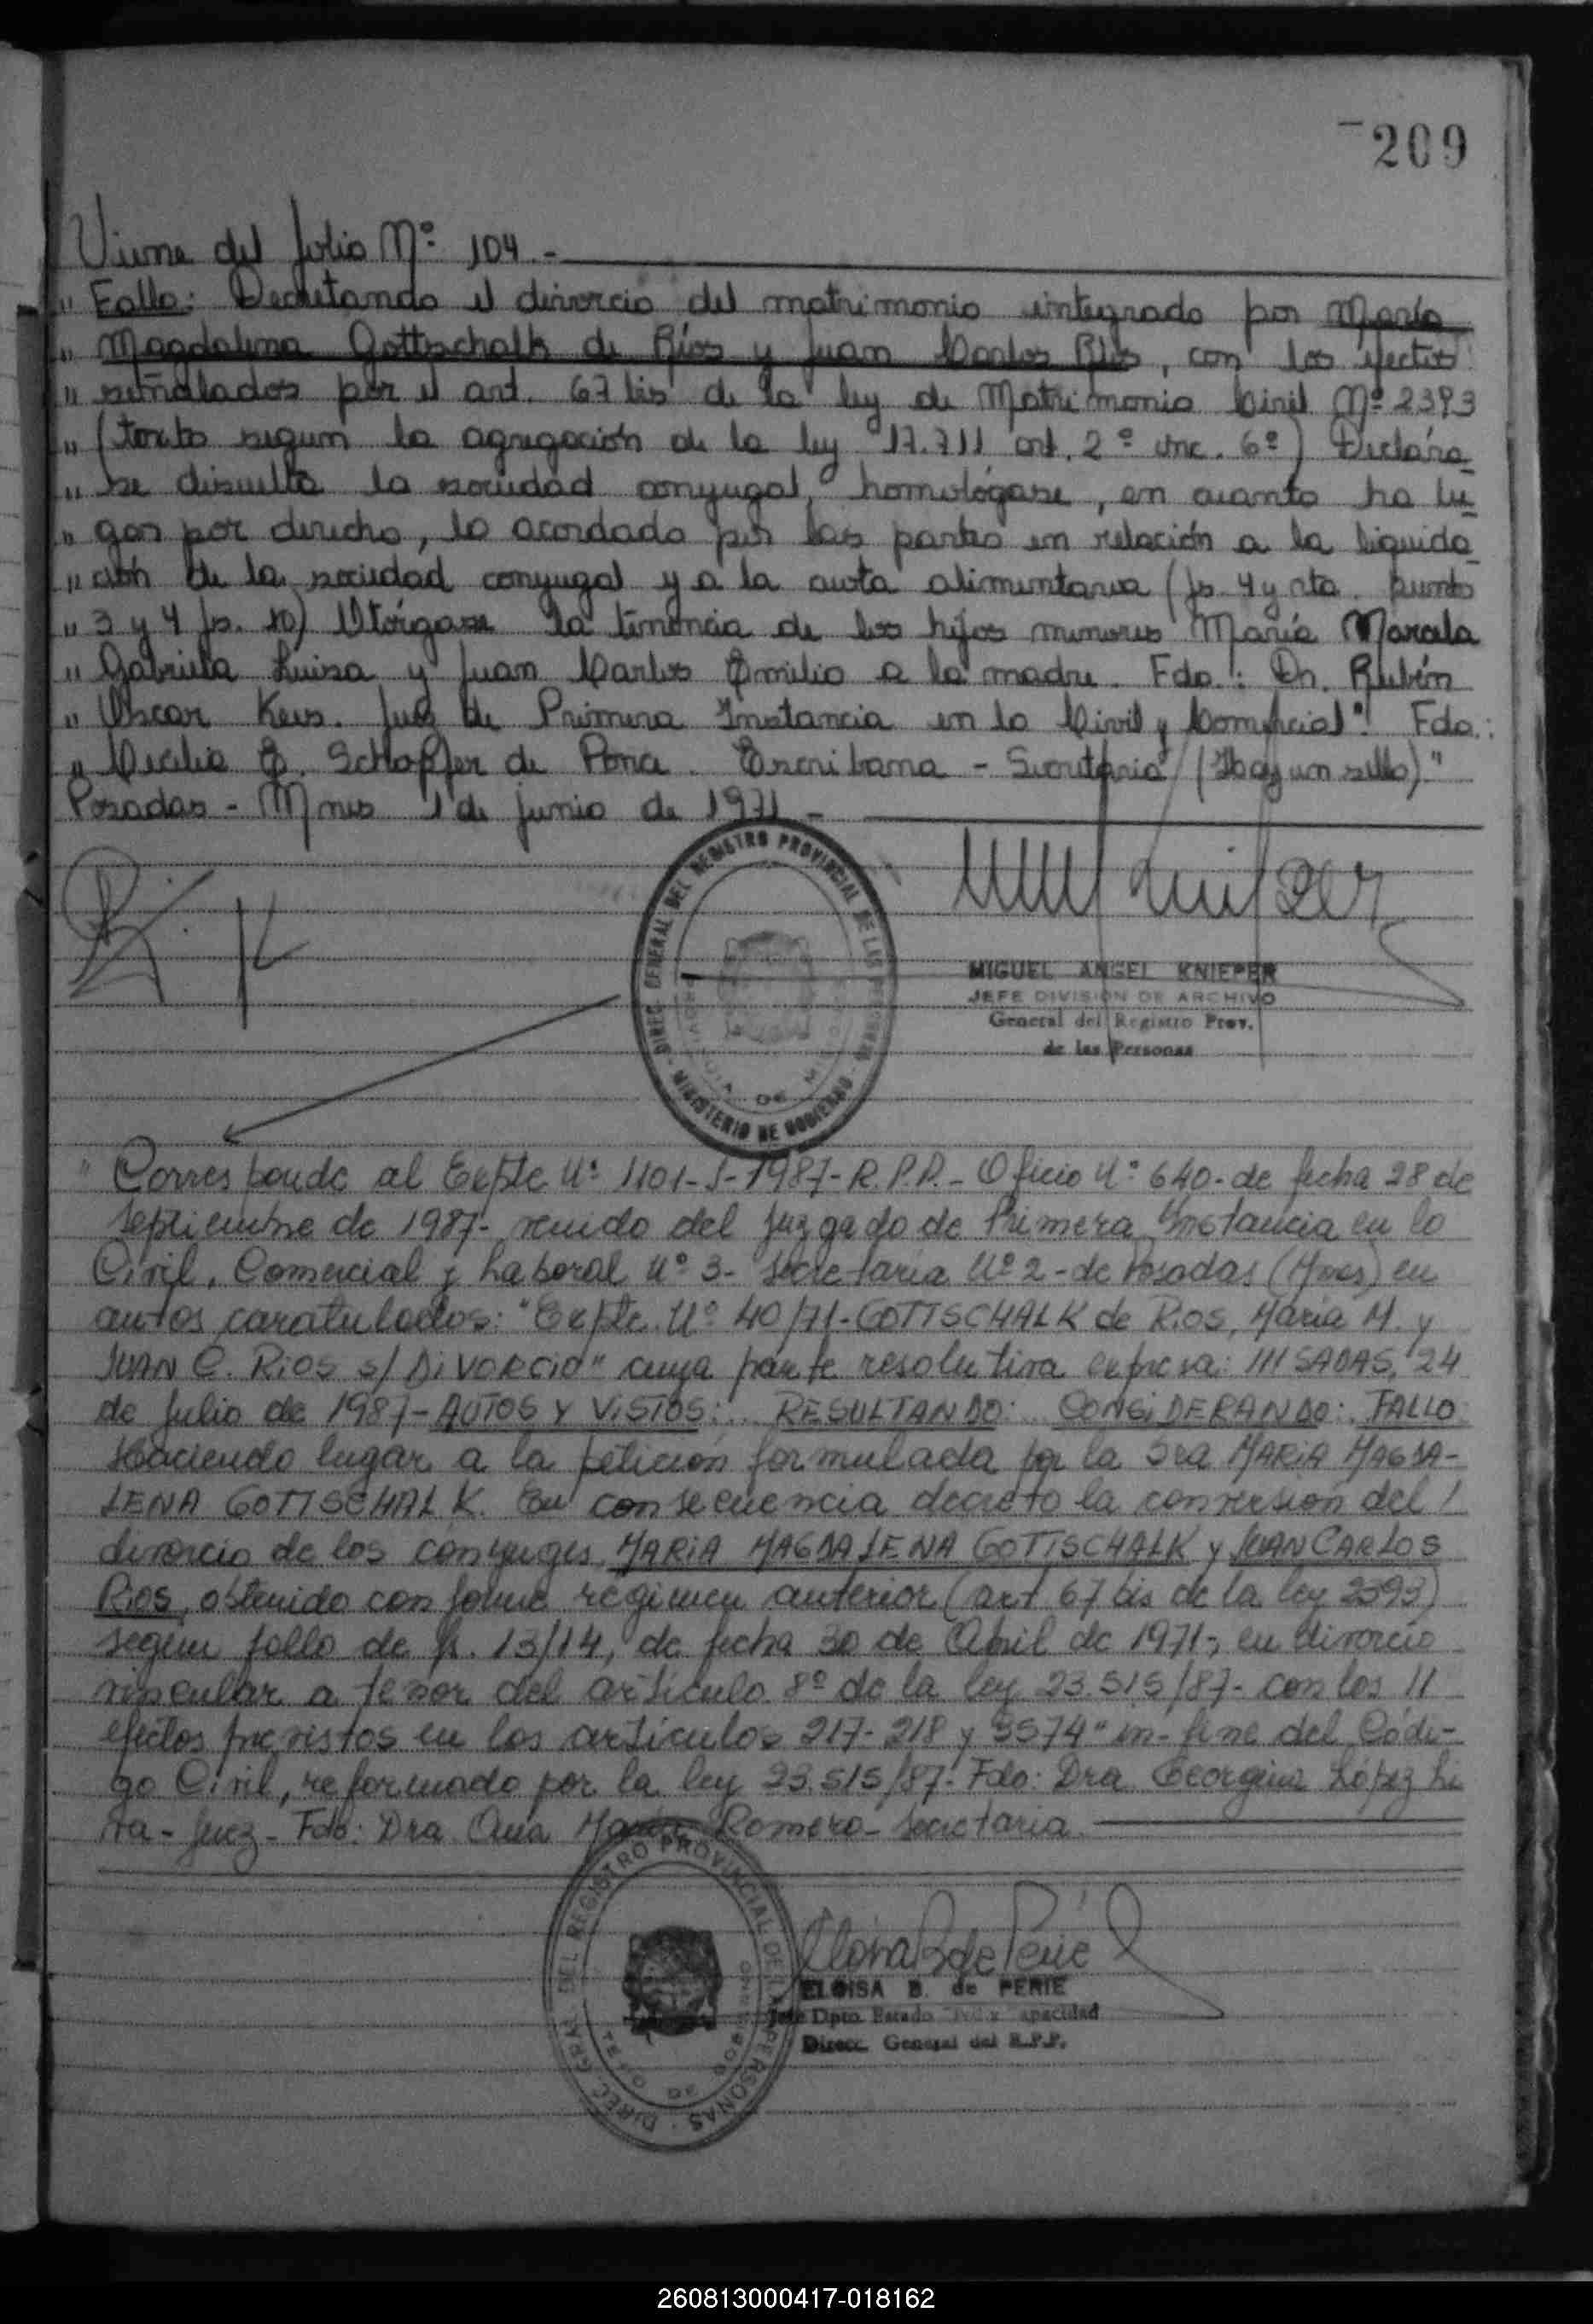 209
Viene del folio Nº 104.-
" Fallo: Decretando el divorcio del matrimonio integrado por María
" Magdalena Gottschalk de Ríos y Juan Carlos Ríos, con los efectos
" señalados por el art. 67 bis de la ley de Matrimonio Civil Nº 2393
" (texto segun la agregación de la ley 17.711 art. 2º inc. 6º) Declára_
" se disuelta la sociedad conyugal, homológase, en cuanto ha lu_
" gar por derecho, lo acordado por las partes en relación a la liquida_
" ción de la sociedad conyugal y a la cuota alimentaria (fs 4 y vta. punto
" 3 y 4 fs. 10) Otórgase la tenencia de los hijos menores María Marcela
" Gabriela Luisa y Juan Carlos Emilio a la madre. Fdo.: Dr. Rubén
" Oscar Keus. Juez de Primera Instancia en lo Civil y Comercial". Fdo.:
" Cecilia E. Schapfer de Ponce. Escribana - Secretaria (Hay un sello)."
Posadas - Mnes 1 de junio de 1971.-
DIREC. GENERAL DEL REGISTRO PROVINCIAL DE LAS PERSONAS - MINISTERIO DE GOBIERNO
MIGUEL ANGEL KNIEPER
JEFE DIVISION DE ARCHIVO
General del Registro Prov.
de las Personas
" Corresponde al Expte Nº 1101-J-1987-R.P.P.- Oficio Nº 640- de fecha 28 de
septiembre de 1987- venido del Juzgado de Primera Instancia en lo
Civil, Comercial y Laboral Nº 3- Secretaría Nº 2- de Posadas (Mnes) en
autos caratulados: "Expte. Nº 40/71- GOTTSCHALK de Rios, María M. y
JUAN C. RIOS s/ DIVORCIO" cuya parte resolutiva expresa: ///SADAS, 24
de Julio de 1987- AUTOS Y VISTOS:.. RESULTANDO:.. CONSIDERANDO:. FALLO
Haciendo lugar a la petición formulada por la Sra MARIA MAGDA-
LENA GOTTSCHALK. En consecuencia decreto la conversión del /
divorcio de los conyuges MARIA MAGDALENA GOTTSCHALK y JUAN CARLOS
RIOS, obtenido conforme regimen anterior (art 67 bis de la ley 2393)
según fallo de fs. 13/14, de fecha 30 de Abril de 1971-, en divorcio
vincular a tenor del artículo 8º de la ley 23.515/87- con los //
efectos previstos en los artículos 217- 218 y 3574 " in-fine del Códi-
go Civil, reformado por la ley 23.515/87- Fdo: Dra Georgina López Li
va- Juez- Fdo: Dra Ana María Romero- Secretaria.
DIREC. GRAL. DEL REGISTRO PROVINCIAL DE LAS PERSONAS
ELOISA B. de PERIE
Jefe Dpto. Estado Civil y Capacidad
Direcc. General del R.P.P.
260813000417-018162